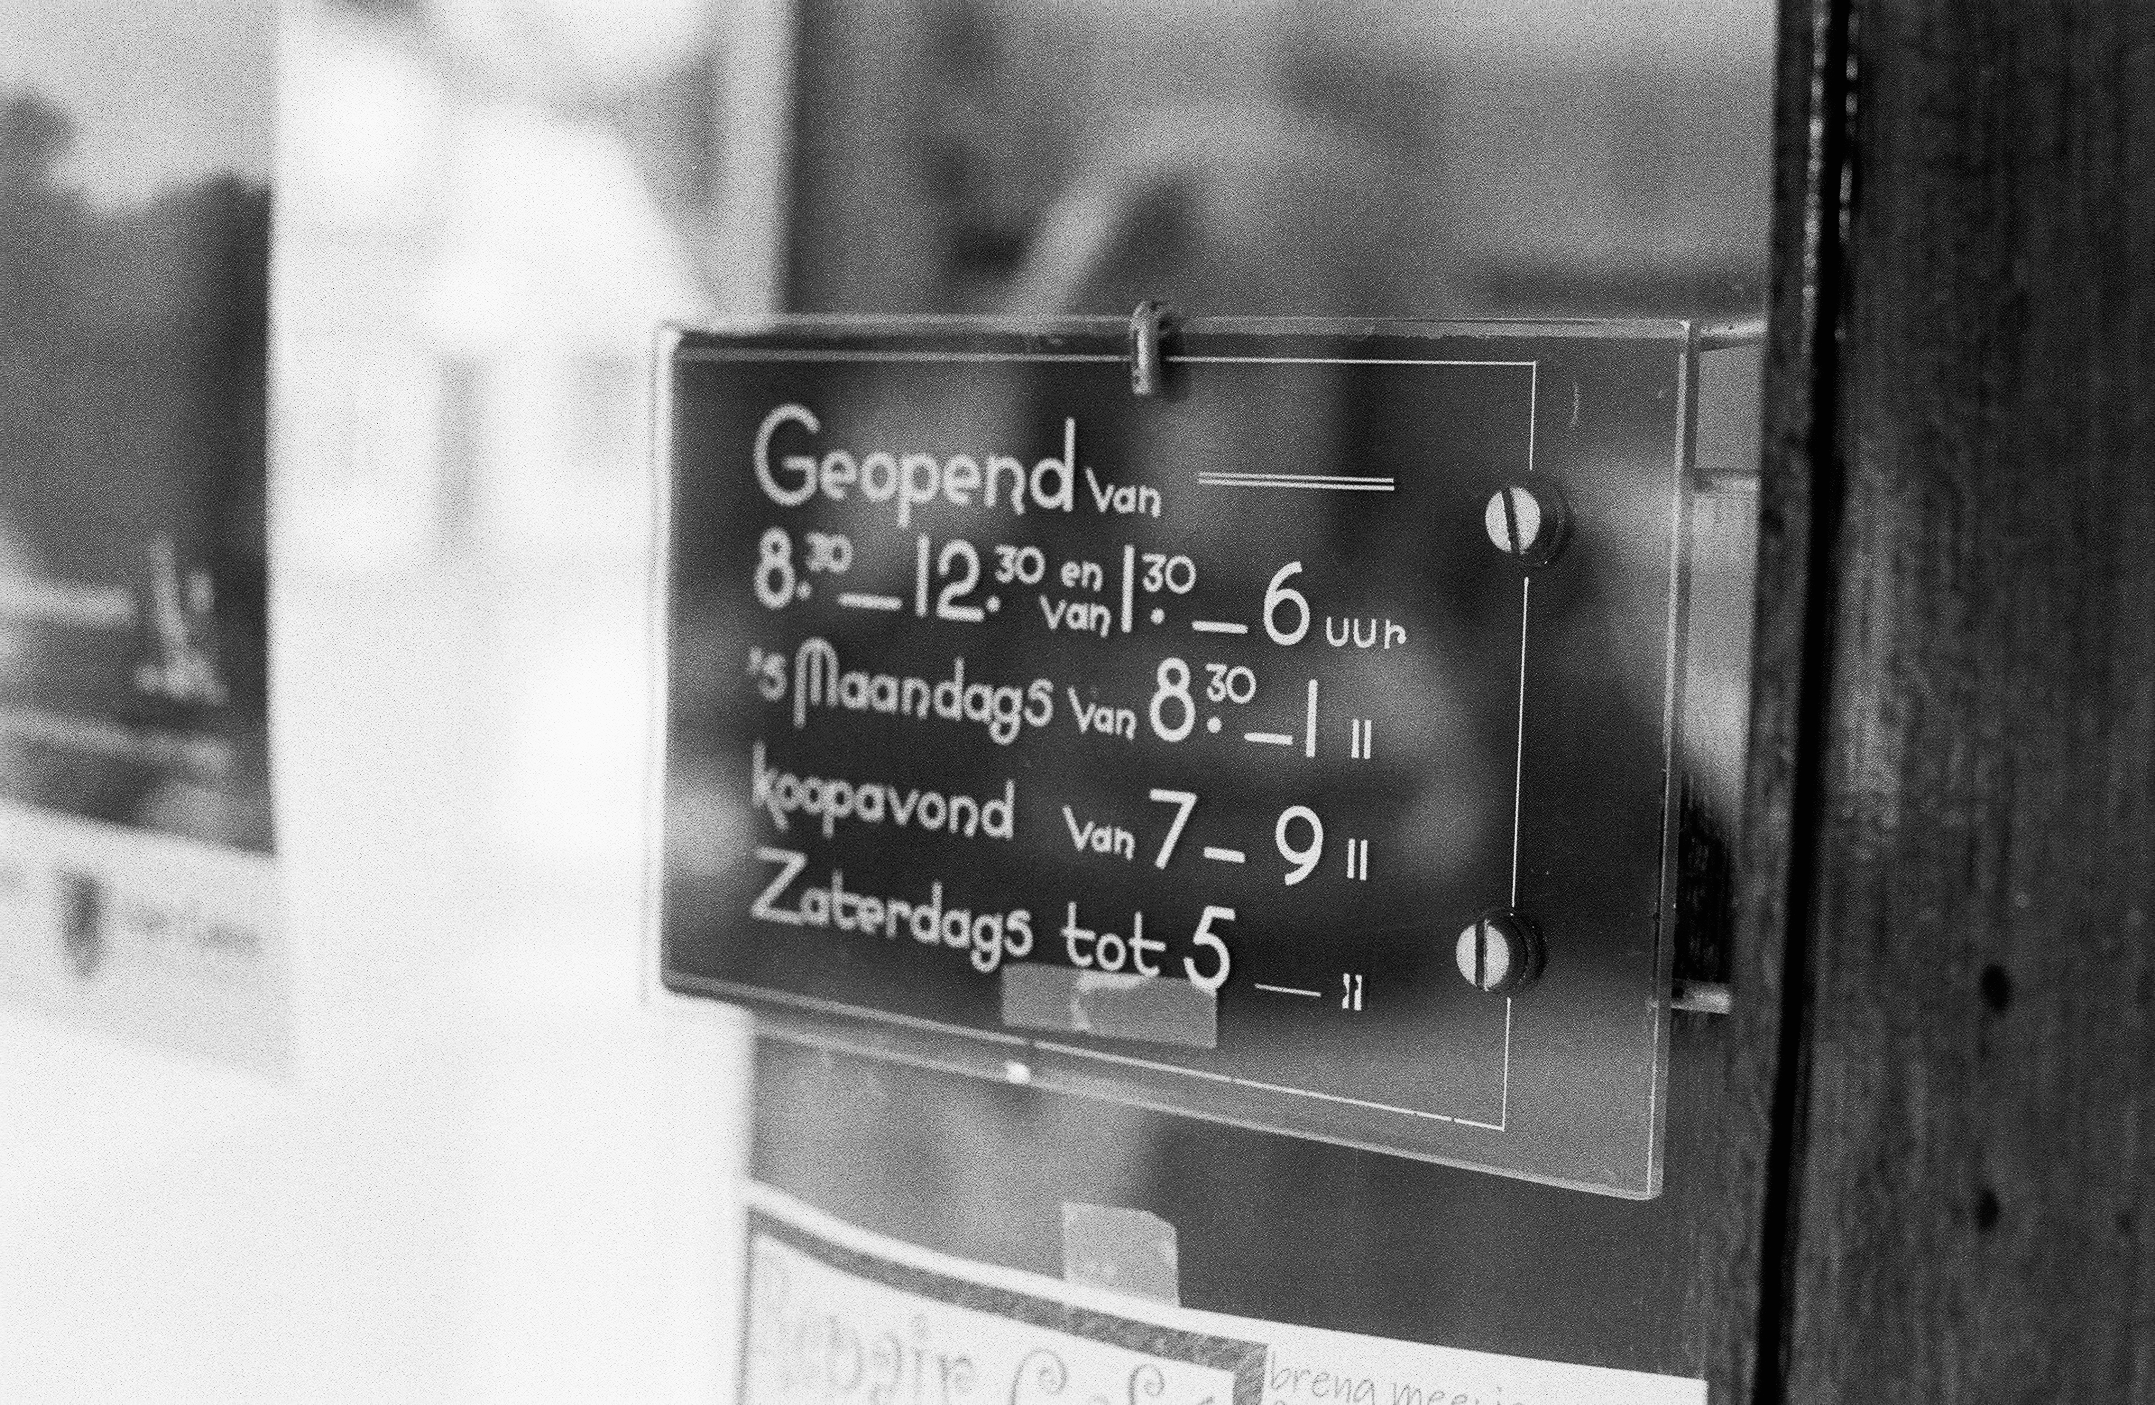 Geopend van
8.30 — 12.30 en van 1.30 — 6 uur
's Maandags van 8.30 — 1 "
koopavond van 7 — 9 "
Zaterdags tot 5 — "
breng mee